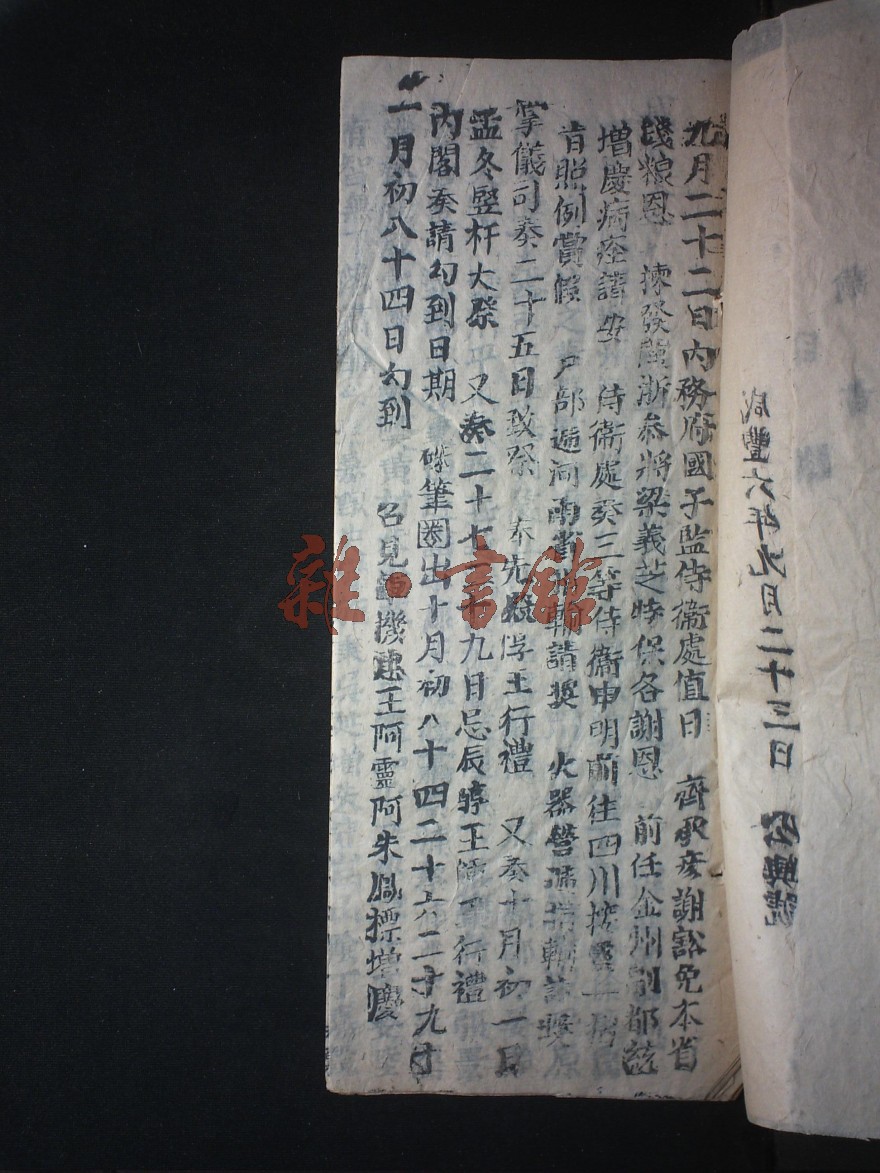 咸豐六年九月二十三日 公興號
九月二十二日內務府國子監侍衛處值日 齊承彦謝豁免本省
錢粮恩 揀發浙叅將梁義芝特保各謝恩 前任金州副都
增慶病痊請安 侍衛處奏三等侍衛申明前往四川
旨照例賞假 戶部遞河南省捐輸請奬 火器營捐輸請奬
掌儀司奏二十五日致祭 奉先殿惇王行禮 又奏十月初一日
孟冬竪杆大祭 又奏二十七二十九日忌辰惇王行禮
內閣奏請勾到日期 硃筆圈出十月初八十四二十六二十九十
一月初八十四日勾到 召見軍機惠王阿靈阿朱鳳標增慶
雜·書館